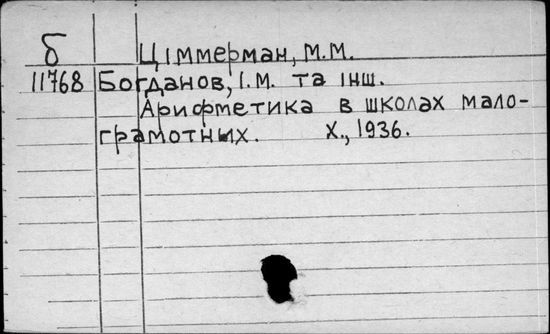 б Ціммерман, М.М.
11768 Богданов, І.М. та інш.
Арифметика в школах мало-
грамотних. Х., 1936.